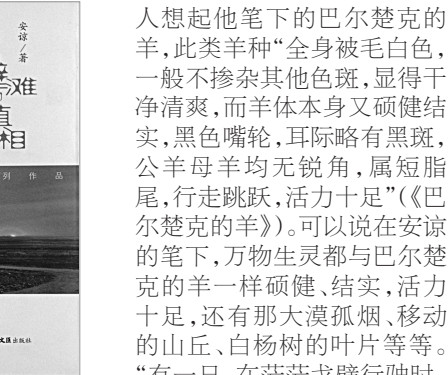 安谅/著
难
真
相
列作品
文汇出版社
人想起他笔下的巴尔楚克的
羊，此类羊种“全身被毛白色，
一般不掺杂其他色斑，显得干
净清爽，而羊体本身又硕健结
实，黑色嘴轮，耳际略有黑斑，
公羊母羊均无锐角，属短脂
尾，行走跳跃，活力十足”(《巴
尔楚克的羊》)。可以说在安谅
的笔下，万物生灵都与巴尔楚
克的羊一样硕健、结实，活力
十足，还有那大漠孤烟、移动
的山丘、白杨树的叶片等等。
“有一只，在茫茫戈壁行驶时，